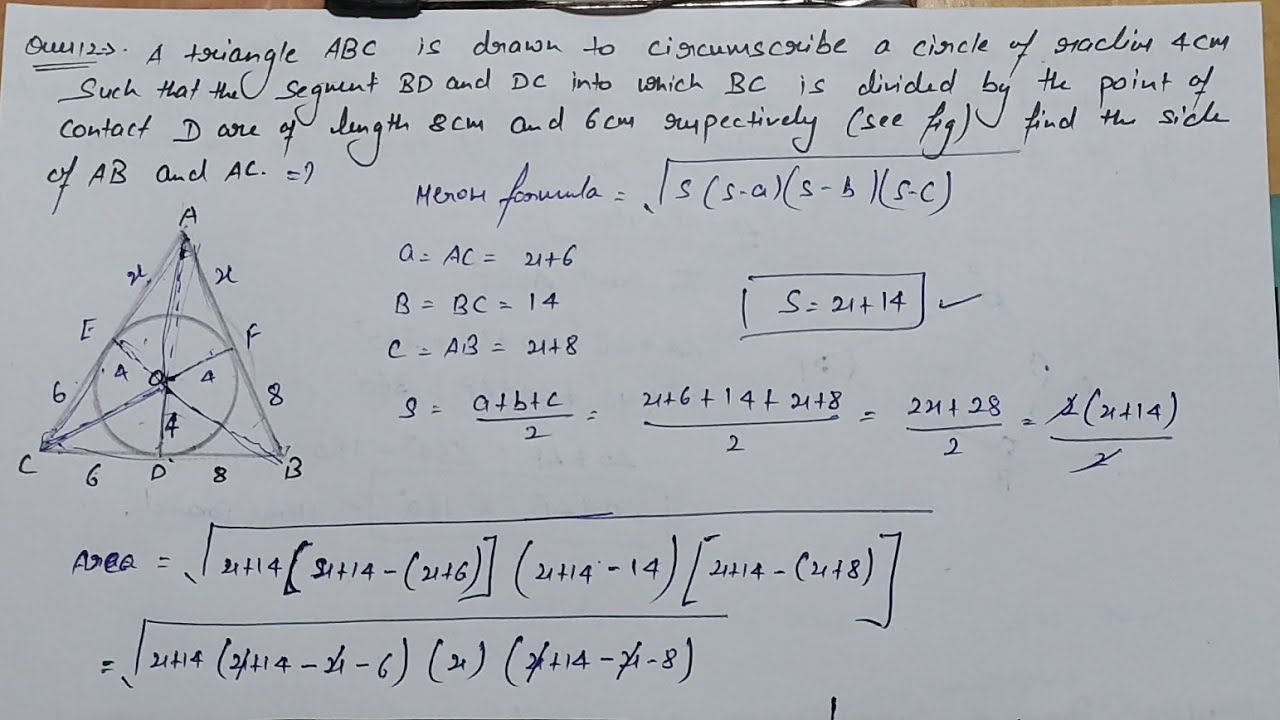 Ques 12→. A triangle ABC is drawn to circumscribe a circle of radius 4cm
Such that the segment BD and DC into which BC is divided by the point of
contact D are of length 8cm and 6cm respectively (see fig) find the side
of AB and AC. =?
Heron formula = √S(S-a)(S-b)(S-c)
A
x x
E F
4 O 4
6 4 8
C 6 D 8 B
a = AC = x+6
B = BC = 14
C = AB = x+8
S = x+14 ✓
S = a+b+c/2 = x+6+14+x+8/2 = 2x+28/2 = 2(x+14)/2
Area = √x+14[x+14-(x+6)](x+14-14)[x+14-(x+8)]
= √x+14(x+14-x-6)(x)(x+14-x-8)